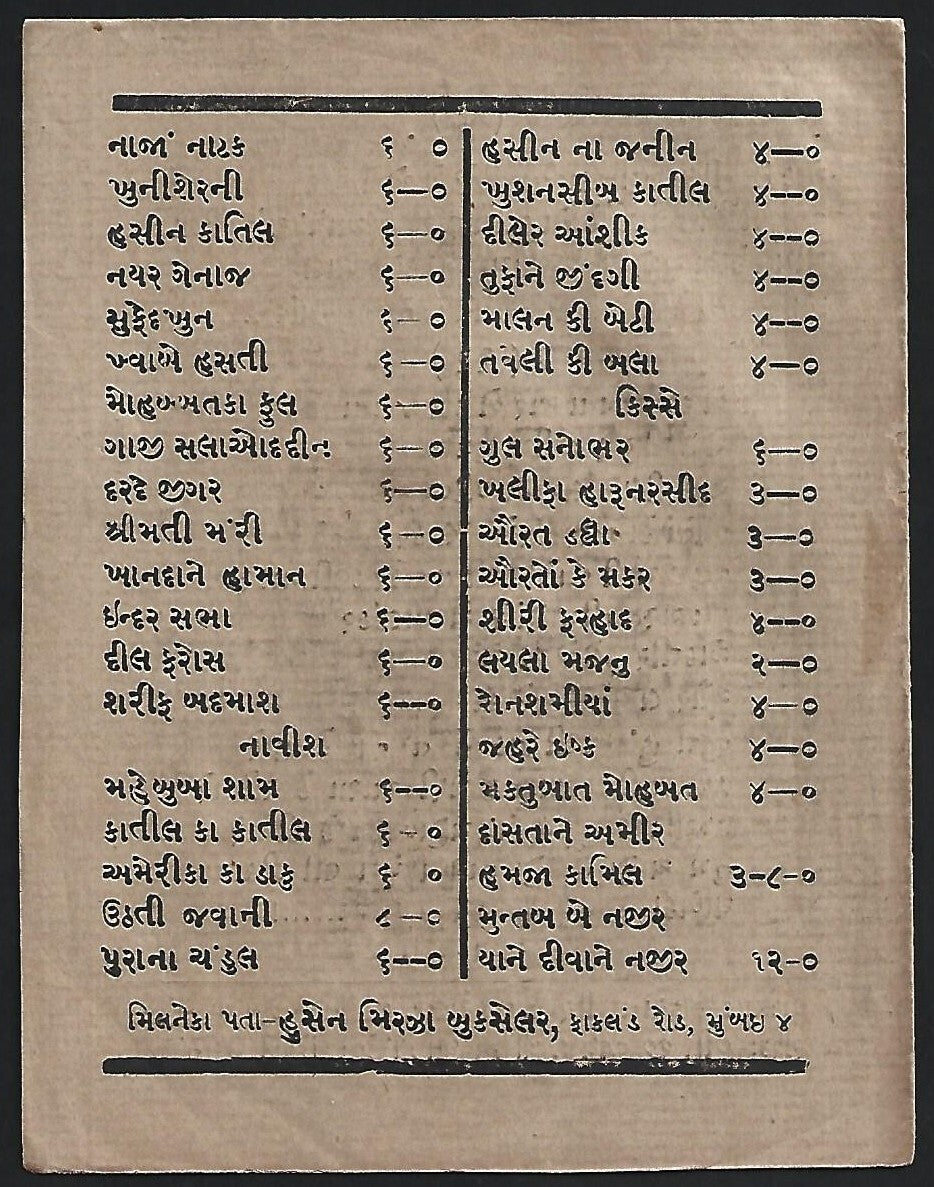 નાજાં નાટક ૬ ૦
ખુનીશેરની ૬—૦
હસીન કાતિલ ૬—૦
નયર ગેનાજ ૬—૦
સુફેદખુન ૬—૦
ખ્વાબે હસતી ૬—૦
મોહબ્બતકા ફુલ ૬—૦
ગાજી સલાઔદદીન ૬—૦
દરદે જીગર ૬—૦
શ્રીમતી મંરી ૬—૦
ખાનદાને હામાન ૬—૦
ઇન્દર સભા ૬—૦
દીલ ફરોસ ૬—૦
શરીફ બદમાશ ૬--૦
નાવીશ
મહેબુબા શામ ૬--૦
કાતીલ કા કાતીલ ૬ - ૦
અમેરીકા કા ડાકુ ૬ ૦
ઉઠતી જવાની ૮ – ૦
પુરાના ચંડુલ ૬--૦
હસીન ના જનીન ૪—૦
ખુશનસીબ કાતીલ ૪--૦
દીલેર આંશીક ૪--૦
તુફાને જીંદગી ૪--૦
માલન કી બેટી ૪--૦
તવેલી કી બલા ૪—૦
કિસ્સે
ગુલ સનોભર ૬—૦
ખલીફા હારૂનરસીદ ૩—૦
ઔંરત ડહ્યી ૩—૦
ઔરતોં કે મકર ૩—૦
શીરીં ફરહાદ ૪--૦
લયલા મજનુ ૨—૦
રોનશમીયાં ૪—૦
જહુરે ઇશ્ક ૪—૦
મકતુબાત મોહબત ૪—૦
દાંસતાને અમીર
હમજા કામિલ ૩-૮-૦
મુન્તખ બે નજીર
યાને દીવાને નજીર ૧૨-૦
મિલનેકા પતા–હુસેન મિરઝા બુકસેલર, ફાકલંડ રોડ, મુંબઇ ૪